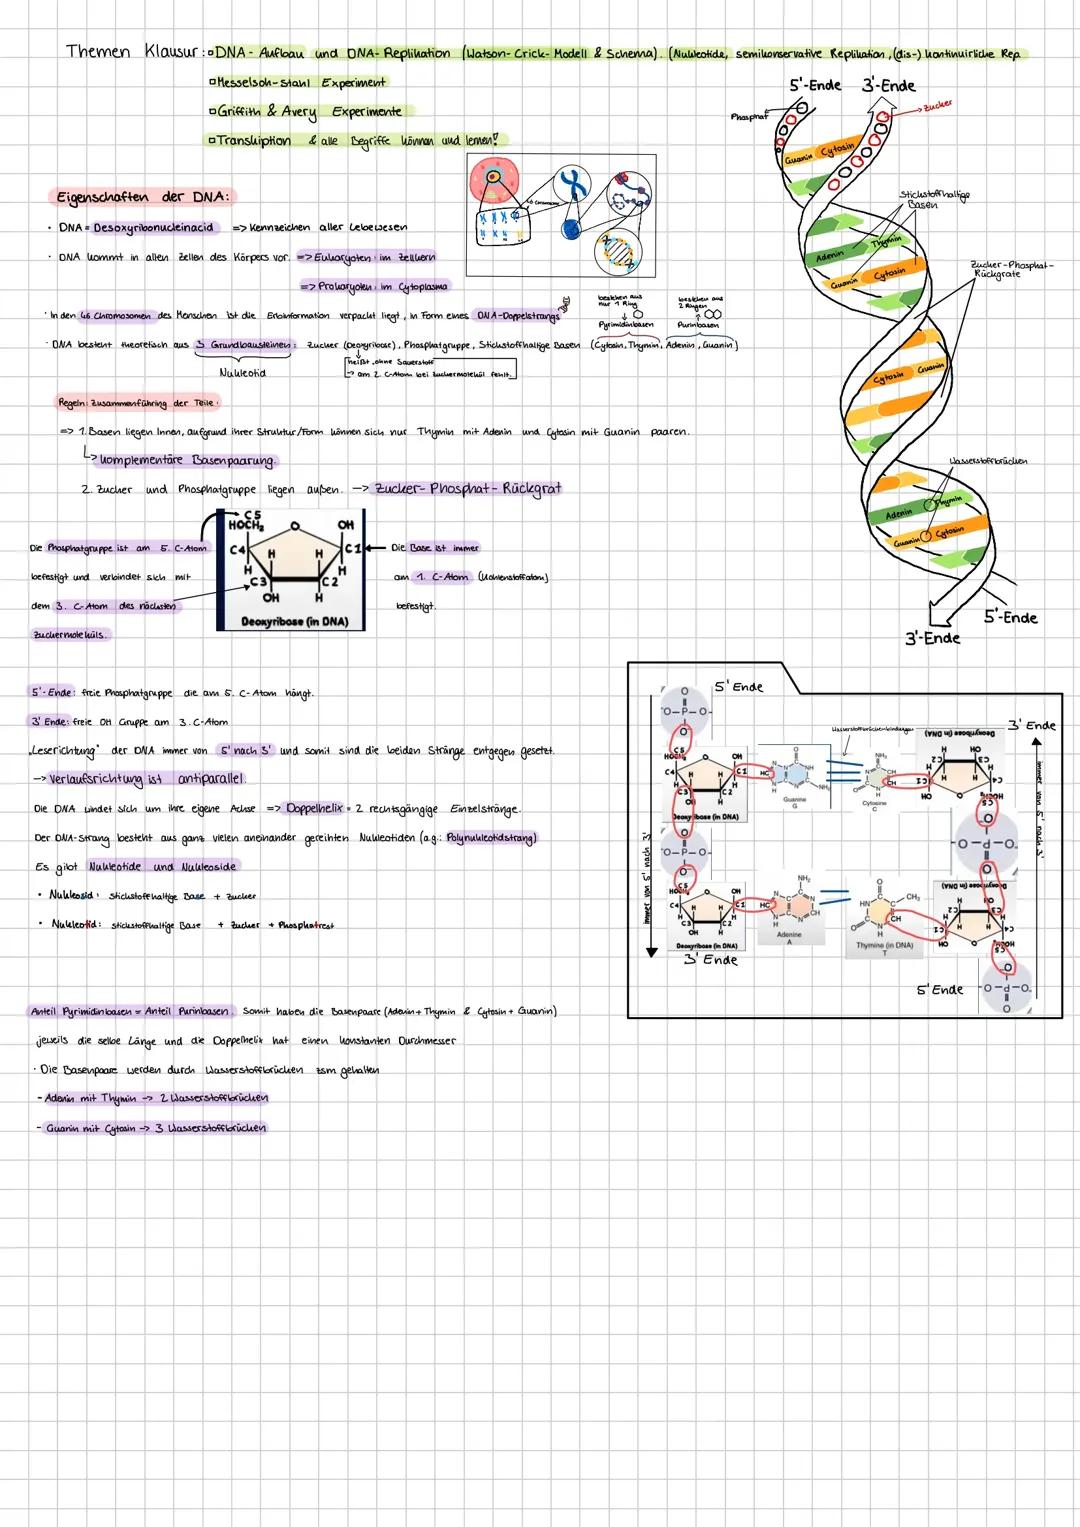 Themen Klausur: DNA - Aufbau und DNA-Replikation (Watson-Crick-Modell & Schema). (Nukleotide, semikonservative Replikation, (dis-) kontinuirliche Rep.
Messelsoh-Stahl Experiment
Griffith & Avery Experimente
Transkiption & alle Begriffe können und lernen!
5'-Ende 3'-Ende
Phosphat
Zucker
Guanin Cytosin
Stickstoffhaltige
Basen
Adenin Thymin
Guanin Cytosin
Zucker-Phosphat-
Rückgrate
Cytosin Guanin
Wasserstoffbrücken
Adenin Thymin
Guanin Cytosin
5'-Ende
3'-Ende
46 Chromosome
Eigenschaften der DNA:
· DNA = Desoxyribonucleinacid => Kennzeichen aller Lebewesen
· DNA kommt in allen Zellen des Körpers vor. => Eukaryoten: im Zellkern
=> Prokaryoten: im Cytoplasma
· In den 46 Chromosomen des Menschen ist die Erbinformation verpackt liegt, in Form eines DNA-Doppelstrangs
bestehen aus
nur 1 Ring
bestehen aus
2 Ringen
Pyrimidinbasen Purinbasen
· DNA besteht theoretisch aus 3 Grundbausteinen: Zucker (Deoxyribose), Phosphatgruppe, Stickstoffhaltige Basen (Cytosin, Thymin, Adenin, Guanin)
Nukleotid
heißt „ohne Sauerstoff"
-> am 2. C-Atom bei Zuckermolekül fehlt.
Regeln: Zusammenführing der Teile:
=> 1. Basen liegen Innen, aufgrund ihrer Struktur/Form können sich nur Thymin mit Adenin und Cytosin mit Guanin paaren.
komplementäre Basenpaarung.
2. Zucker und Phosphatgruppe liegen außen. -> Zucker-Phosphat-Rückgrat
Die Phosphatgruppe ist am 5. C-Atom
befestigt und verbindet sich mit
dem 3. C-Atom des nächsten
Zuckermoleküls.
C5
HOCH2 O OH
C4 H H C1
H H
C3 C2
OH H
Deoxyribose (in DNA)
Die Base ist immer
am 1. C-Atom (Kohlenstoffatom)
befestigt.
5'-Ende: freie Phosphatgruppe die am 5. C-Atom hängt.
3' Ende: freie OH Gruppe am 3. C-Atom
„Leserichtung" der DNA immer von 5' nach 3' und somit sind die beiden Stränge entgegen gesetzt.
-> Verlaufsrichtung ist antiparallel.
Die DNA windet sich um ihre eigene Achse => Doppelhelix = 2 rechtsgängige Einzelstränge.
Der DNA-Strang besteht aus ganz vielen aneinander gereihten Nukleotiden (a.g.: Polynukleotidstrang)
Es gibt Nukleotide und Nukleoside
• Nukleosid: Stickstoffhaltige Base + Zucker
• Nukleotid: stickstoffhaltige Base + Zucker + Phosphatrest
Anteil Pyrimidinbasen = Anteil Purinbasen. Somit haben die Basenpaare (Adenin + Thymin & Cytosin + Guanin)
jeweils die selbe Länge und die Doppelhelix hat einen konstanten Durchmesser
· Die Basenpaare werden durch Wasserstoffbrücken zsm gehalten
- Adenin mit Thymin -> 2 Wasserstoffbrücken
- Guanin mit Cytosin -> 3 Wasserstoffbrücken
5' Ende
3' Ende
Wasserstoffbrückenbindungen
immer von 5' nach 3'
immer von 5' nach 3'
Guanine
G
Cytosine
C
Deoxyribose (in DNA)
Deoxyribose (in DNA)
Adenine
A
Thymine (in DNA)
T
Deoxyribose (in DNA)
Deoxyribose (in DNA)
3' Ende
5' Ende